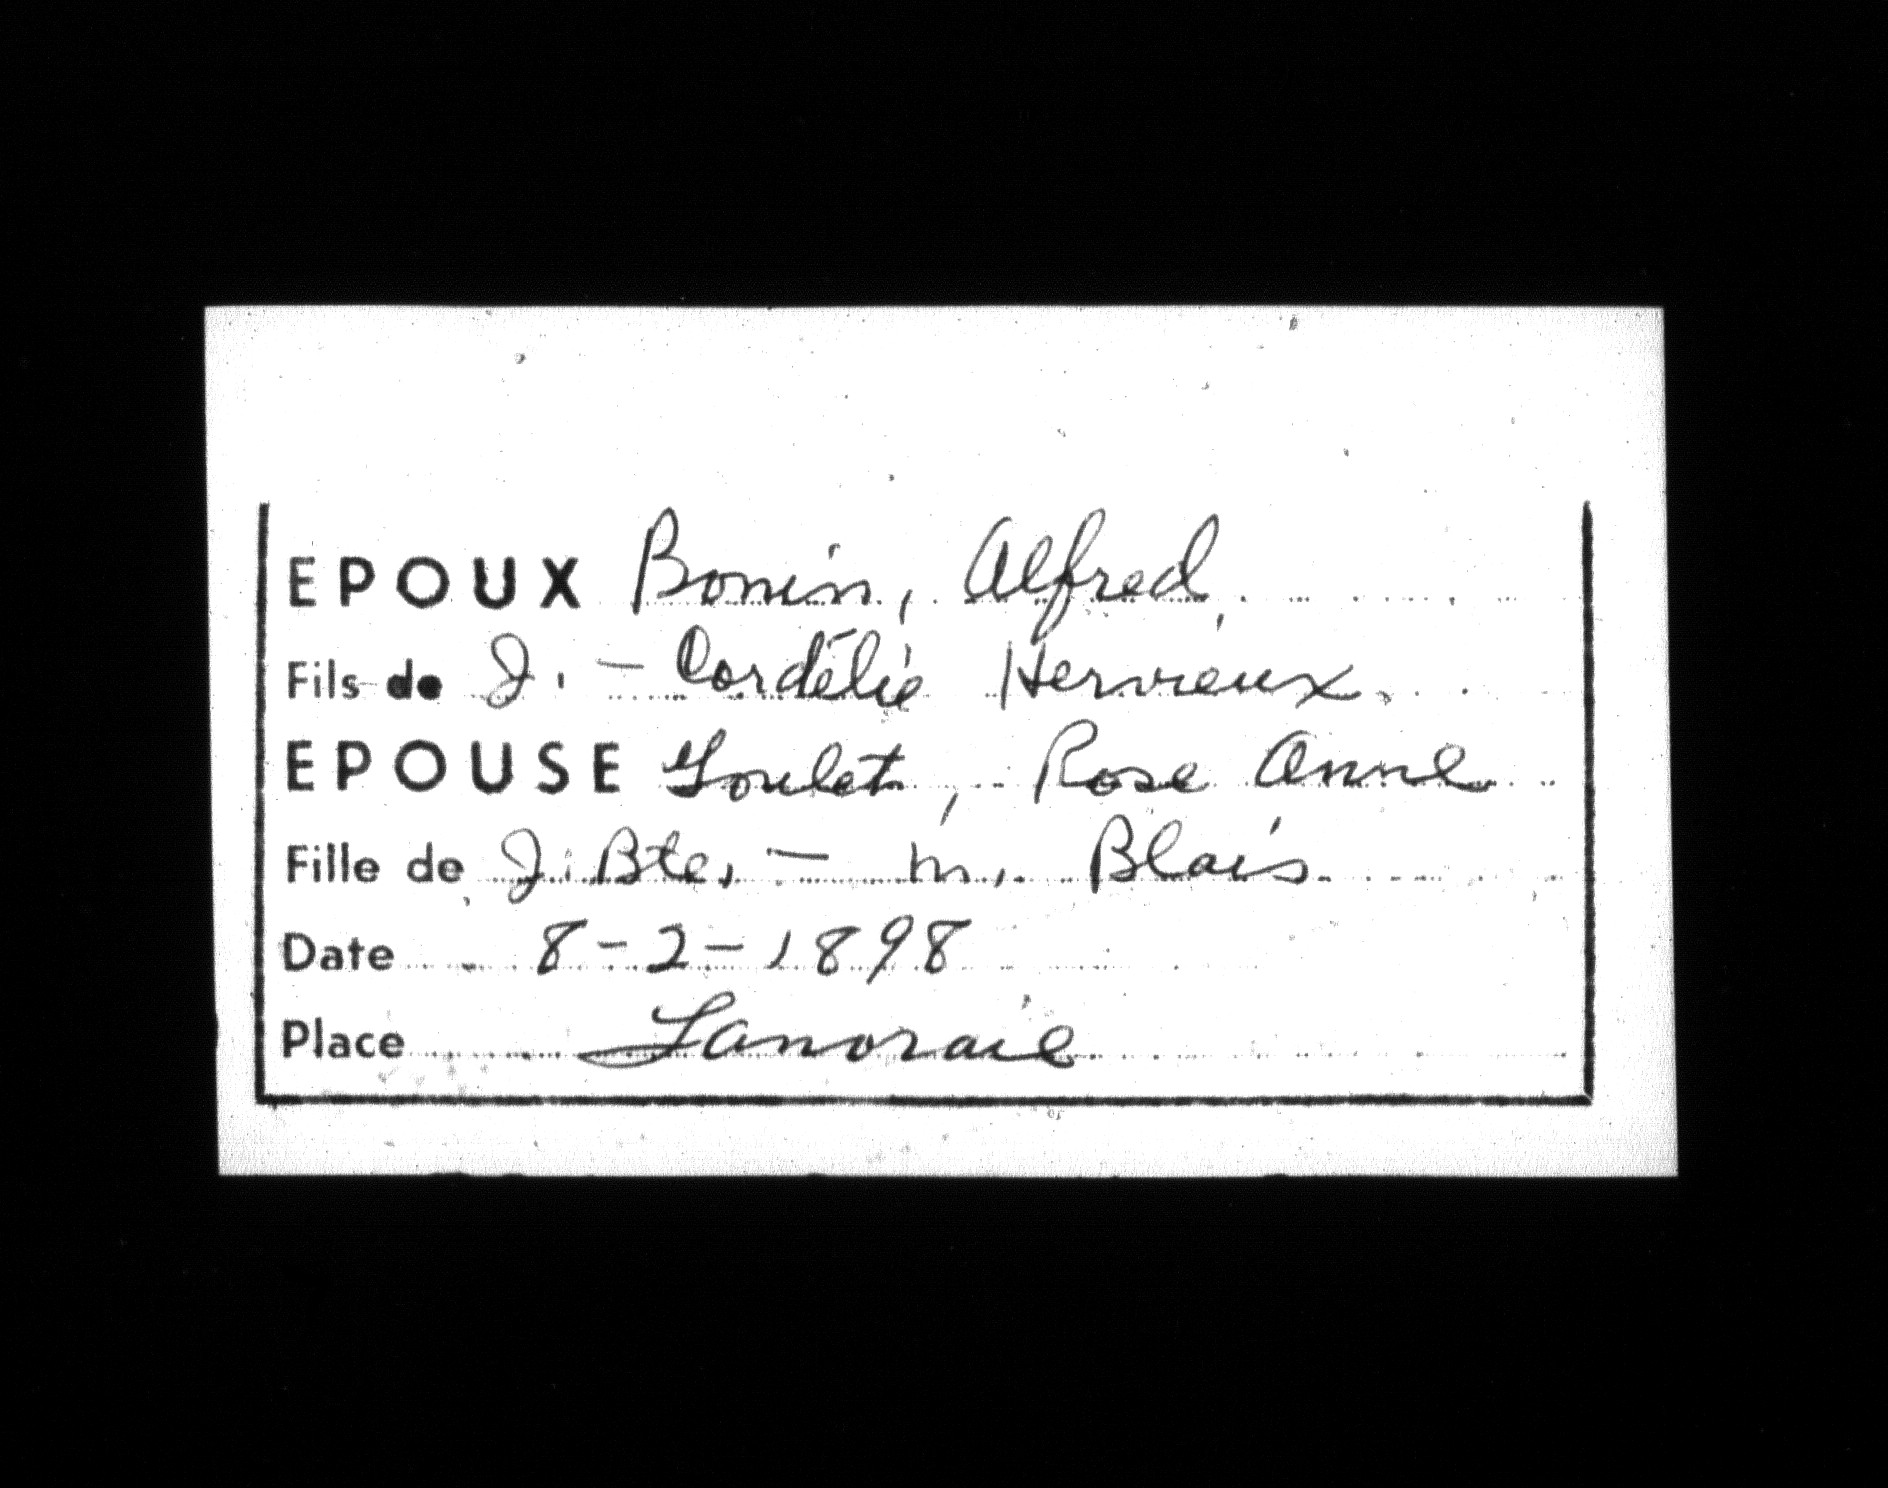 EPOUX Bonin, Alfred
Fils de J. - Cordélie Hervieux
EPOUSE Goulet, Rose Anne
Fille de J. Bte. - m. Blais
Date 8-2-1898
Place Lanoraie